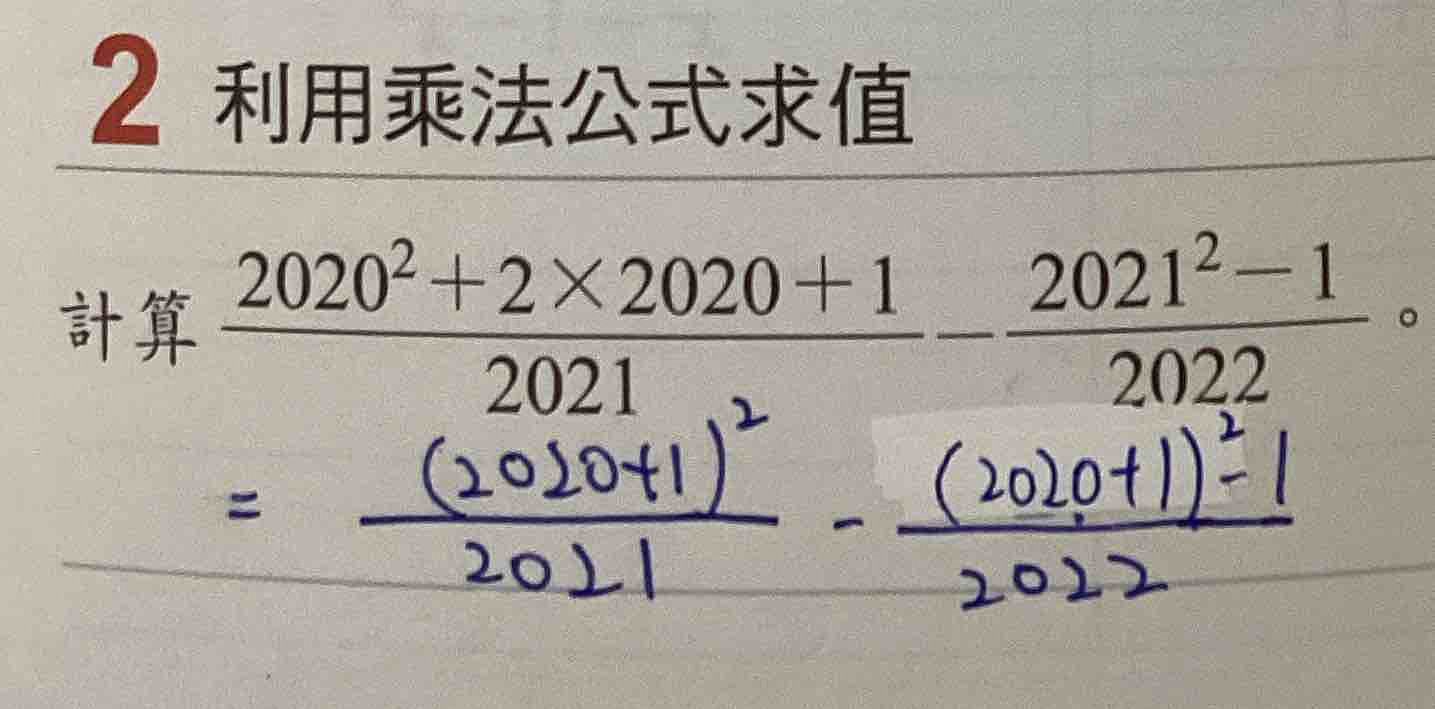 2 利用乘法公式求值
計算 \frac{2020²+2×2020+1}{2021} - \frac{2021²-1}{2022}。
= \frac{(2020+1)²}{2021} - \frac{(2020+1)²-1}{2022}